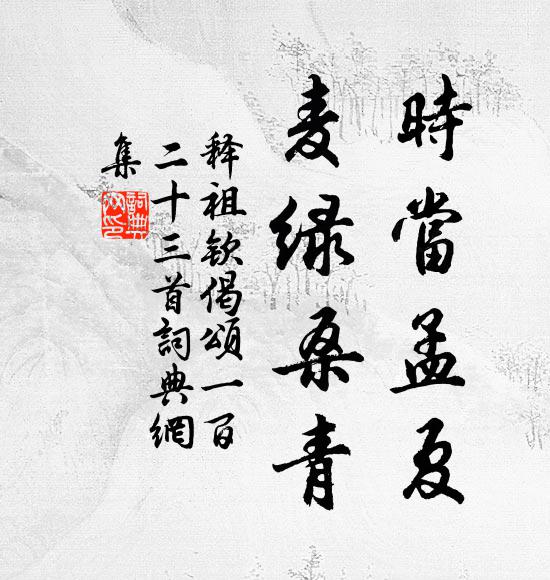 時當孟夏
麦绿桑青
释祖钦偈頌一百
二十三首詞典網
集
詞典
网印